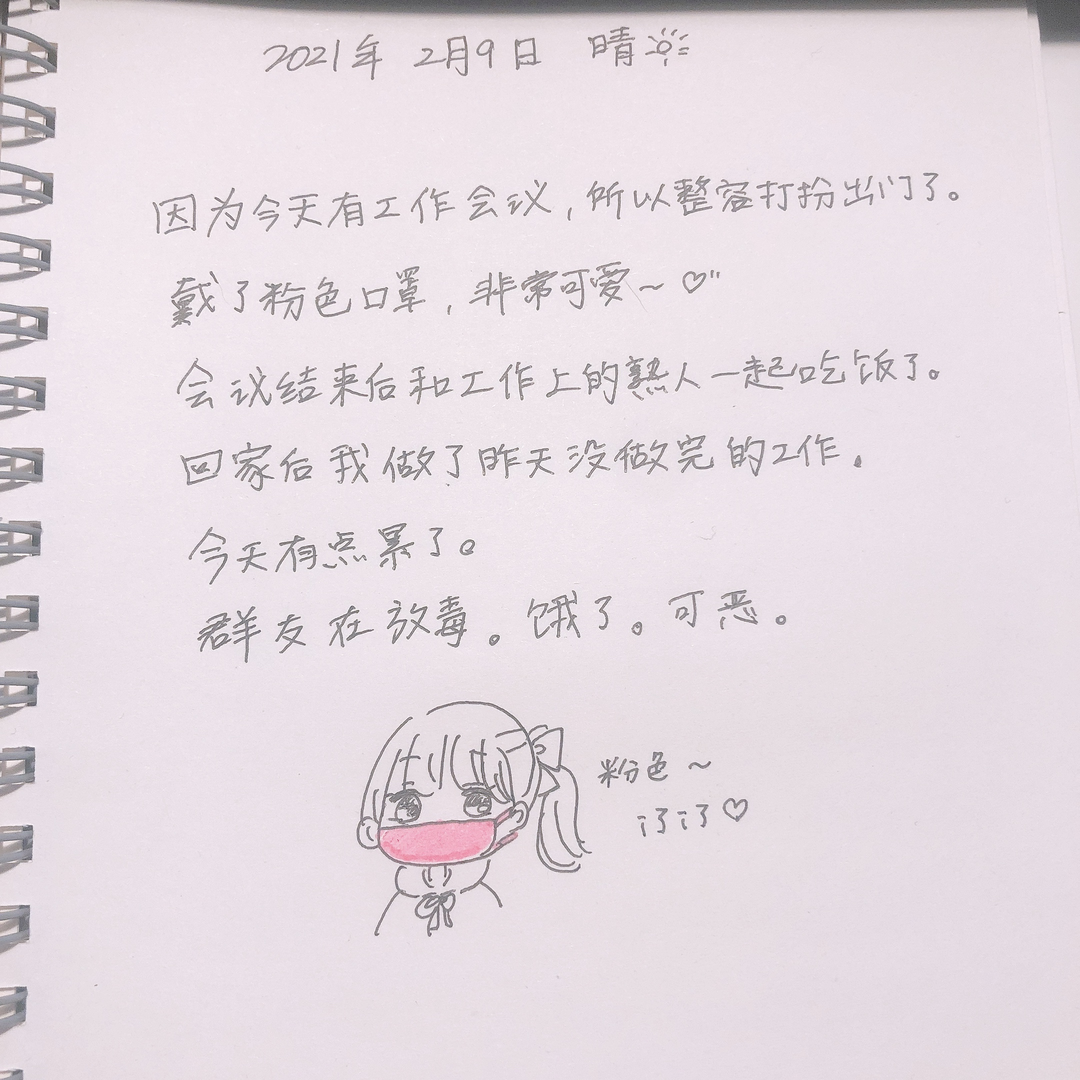 2021年 2月9日 晴
因为今天有工作会议,所以整容打扮出门了。
戴了粉色口罩,非常可爱~♡"
会议结束后和工作上的熟人一起吃饭了。
回家后我做了昨天没做完的工作.
今天有点累了。
群友在放毒。饿了。可恶。
粉色~